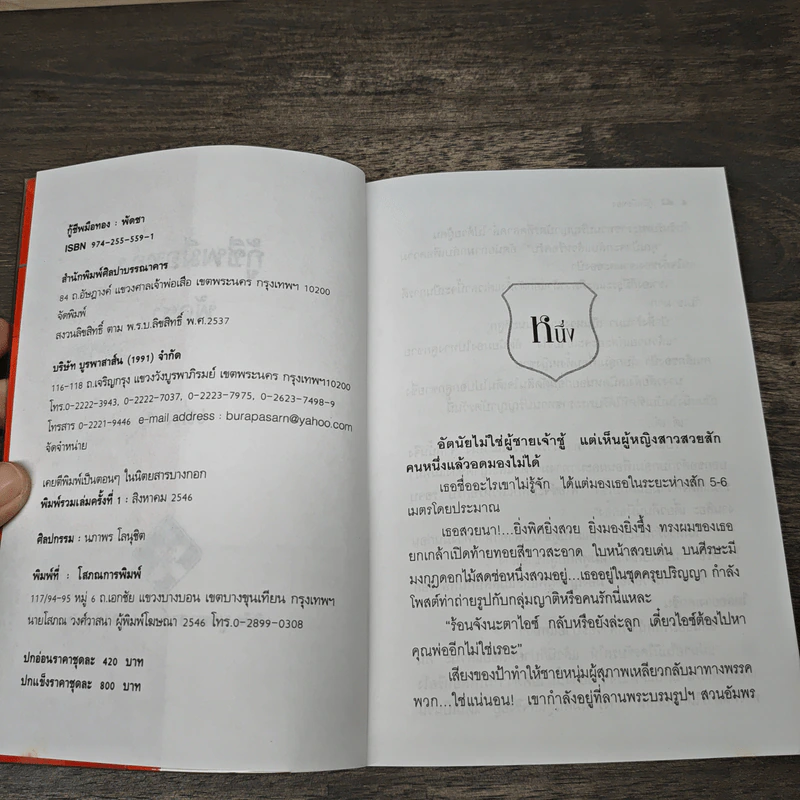 กู้ชีพมือทอง : พัดชา
ISBN 974-255-559-1
สำนักพิมพ์ศิลปาบรรณาคาร
84 ถ.อัษฎางค์ แขวงศาลเจ้าพ่อเสือ เขตพระนคร กรุงเทพฯ 10200
จัดพิมพ์
สงวนลิขสิทธิ์ ตาม พ.ร.บ.ลิขสิทธิ์ พ.ศ.2537
บริษัท บูรพาสาส์น (1991) จำกัด
116-118 ถ.เจริญกรุง แขวงวังบูรพาภิรมย์ เขตพระนคร กรุงเทพฯ10200
โทร.0-2222-3943, 0-2222-7037, 0-2223-7975, 0-2623-7498-9
โทรสาร 0-2221-9446 e-mail address : burapasarn@yahoo.com
จัดจำหน่าย
เคยตีพิมพ์เป็นตอนๆ ในนิตยสารบางกอก
พิมพ์รวมเล่มครั้งที่ 1 : สิงหาคม 2546
ศิลปกรรม : นภาพร โลนุชิต
พิมพ์ที่ : โสภณการพิมพ์
117/94-95 หมู่ 6 ถ.เอกชัย แขวงบางบอน เขตบางขุนเทียน กรุงเทพฯ
นายโสภณ วงศ์วาสนา ผู้พิมพ์โฆษณา 2546 โทร.0-2899-0308
ปกอ่อนราคาชุดละ 420 บาท
ปกแข็งราคาชุดละ 800 บาท
หนึ่ง
อัตนัยไม่ใช่ผู้ชายเจ้าชู้ แต่เห็นผู้หญิงสาวสวยสัก
คนหนึ่งแล้วอดมองไม่ได้
เธอชื่ออะไรเขาไม่รู้จัก ได้แต่มองเธอในระยะห่างสัก 5-6
เมตรโดยประมาณ
เธอสวยนา!...ยิ่งพิศยิ่งสวย ยิ่งมองยิ่งซึ้ง ทรงผมของเธอ
ยกเกล้าเปิดท้ายทอยสีขาวสะอาด ใบหน้าสวยเด่น บนศีรษะมี
มงกุฎดอกไม้สดช่อหนึ่งสวมอยู่...เธออยู่ในชุดครุยปริญญา กำลัง
โพสต์ท่าถ่ายรูปกับกลุ่มญาติหรือคนรักนี่แหละ
“ร้อนจังนะตาไอซ์ กลับหรือยังล่ะลูก เดี๋ยวไอซ์ต้องไปหา
คุณพ่ออีกไม่ใช่เรอะ”
เสียงของป้าทำให้ชายหนุ่มผู้สุภาพเหลียวกลับมาทางพรรค
พวก...ใช่แน่นอน! เขากำลังอยู่ที่ลานพระบรมรูปฯ สวนอัมพร